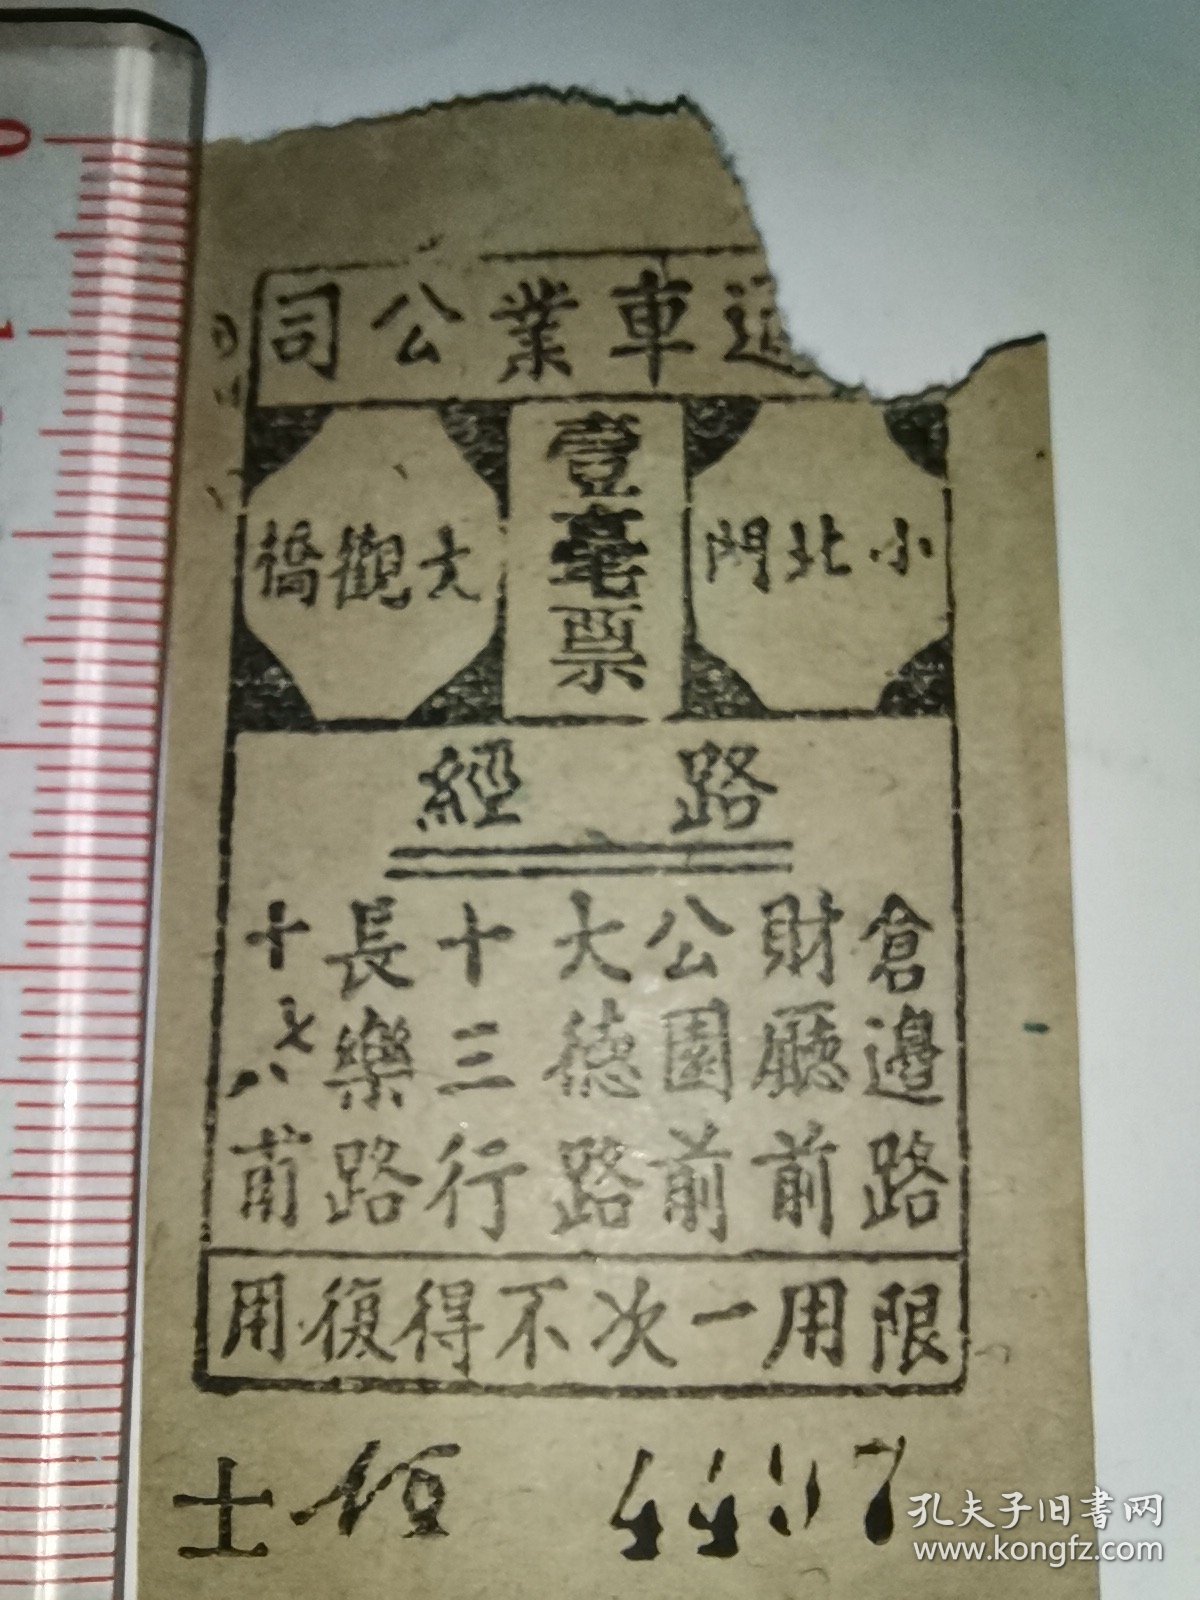 通車業公司
小北門
壹毫票
大觀橋
路經
倉邊路
財廳前
公園前
大德路
十三行
長樂路
十七八甫
限用一次不得復用
0
1
孔夫子旧书网
www.kongfz.com